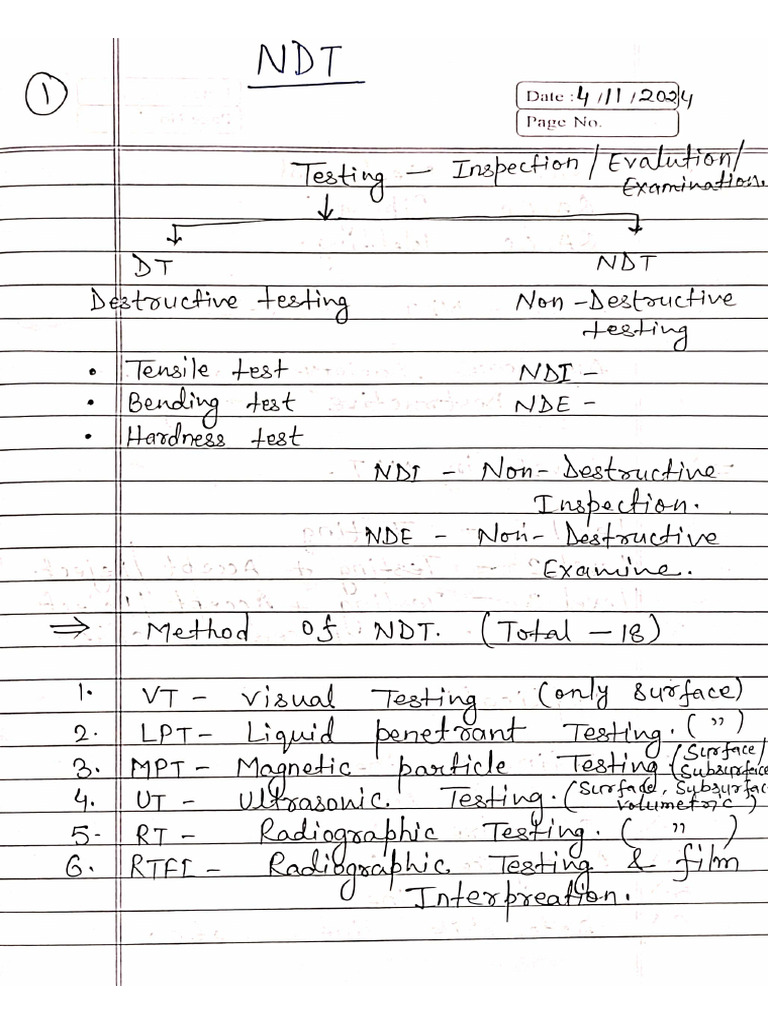 NDT
1
Date : 4/11/2024
Page No.
Testing — Inspection / Evalution/
Examination.
DT NDT
Destructive testing Non-Destructive
testing
• Tensile test NDI -
• Bending test NDE -
• Hardness test
NDI - Non-Destructive
Inspection.
NDE - Non-Destructive
Examine.
⇒ Method Of NDT. (Total - 18)
1. VT - Visual Testing (only surface)
2. LPT - Liquid penetrant Testing. ( " )
3. MPT - Magnetic particle Testing (Surface/
Subsurface
4. UT - Ultrasonic Testing. (Surface, Subsurfac
volumetric)
5- RT - Radiographic Testing. ( " )
6. RTFI - Radiographic Testing & film
Interpreation.